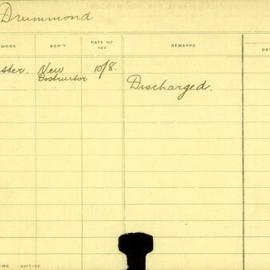 Drummond
WORK DEP'T RATE OF PAY REMARKS DAT
ster. New 10/8.
Distributor Discharged.